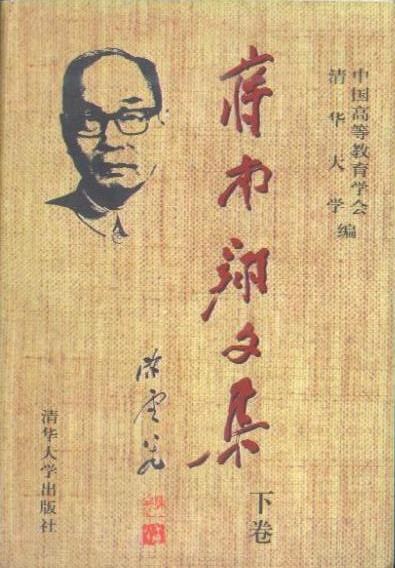 中国高等教育学会
清华大学 编
蒋南翔文集
下卷
清华大学出版社